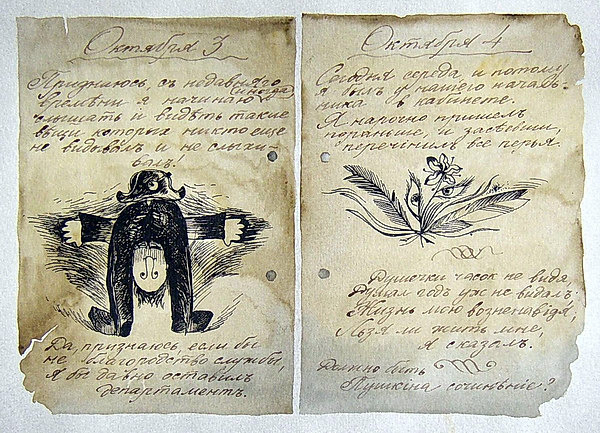 Октября 3
Признаюсь, съ недавняго
(иногда)
времѣни я начинаю
слышать и видѣть такие
вѣщи которых никто еще
не видовалъ и не слыхи-
валъ!
Да, признаюсь, если бы
не благородство службы,
я бы давно оставилъ
департаментъ.
Октября 4
Сегодня середа, и потому
я былъ у нашего началь-
ника в кабинете.
Я нарочно пришелъ
пораньше, и засѣвши,
перечинилъ все перья
Душечки часок не видя,
Думал годъ уж не видалъ;
Жизнь мою возненавидя,
Льзя ли жить мне,
я сказалъ!
Должно быть
Пушкина сочинѣние?